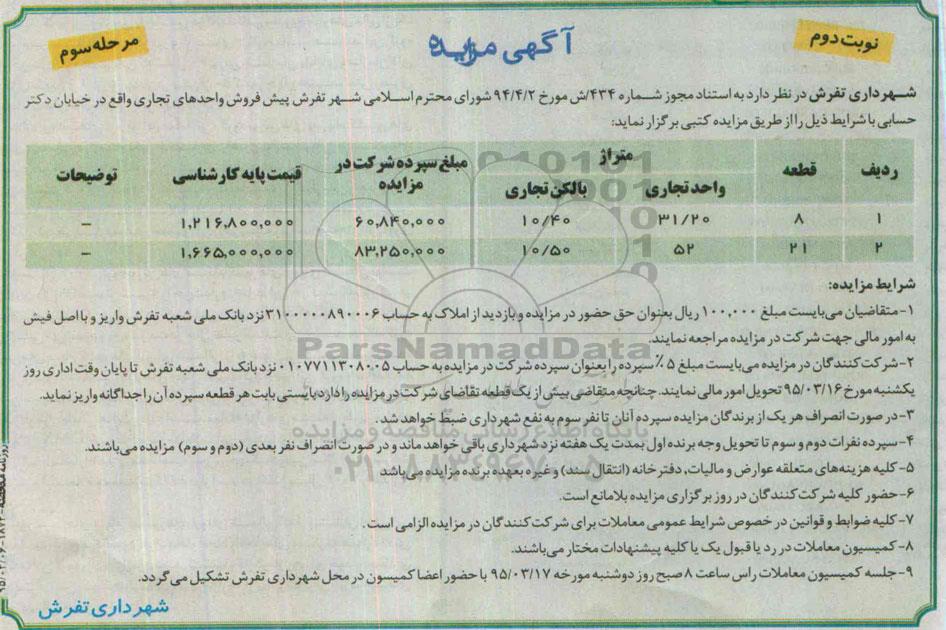 نوبت دوم
آگهی مزایده
مرحله سوم
شهرداری تفرش در نظر دارد به استناد مجوز شماره ۴۳۴/ش مورخ ۹۴/۴/۲ شورای محترم اسلامی شهر تفرش پیش فروش واحدهای تجاری واقع در خیابان دکتر
حسابی با شرایط ذیل را از طریق مزایده کتبی برگزار نماید:
ردیف قطعه متراژ مبلغ سپرده شرکت در مزایده قیمت پایه کارشناسی توضیحات
واحد تجاری بالکن تجاری
۱ ۸ ۳۱/۲۰ ۱۰/۴۰ ۶۰,۸۴۰,۰۰۰ ۱,۲۱۶,۸۰۰,۰۰۰ –
۲ ۲۱ ۵۲ ۱۰/۵۰ ۸۳,۲۵۰,۰۰۰ ۱,۶۶۵,۰۰۰,۰۰۰ –
شرایط مزایده:
۱- متقاضیان می‌بایست مبلغ ۱۰۰,۰۰۰ ریال بعنوان حق حضور در مزایده و بازدید از املاک به حساب ۳۱۰۰۰۰۰۸۹۰۰۰۶ نزد بانک ملی شعبه تفرش واریز و با اصل فیش
به امور مالی جهت شرکت در مزایده مراجعه نمایند.
۲- شرکت کنندگان در مزایده می‌بایست مبلغ ۵٪ سپرده را بعنوان سپرده شرکت در مزایده به حساب ۰۱۰۷۷۱۱۳۰۸۰۰۵ نزد بانک ملی شعبه تفرش تا پایان وقت اداری روز
یکشنبه مورخ ۹۵/۰۳/۱۶ تحویل امور مالی نمایند. چنانچه متقاضی بیش از یک قطعه تقاضای شرکت در مزایده را دارد بایستی بابت هر قطعه سپرده آن را جداگانه واریز نماید.
۳- در صورت انصراف هر یک از برندگان مزایده سپرده آنان تا نفر سوم به نفع شهرداری ضبط خواهد شد.
۴- سپرده نفرات دوم و سوم تا تحویل وجه برنده اول بمدت یک هفته نزد شهرداری باقی خواهد ماند و در صورت انصراف نفر بعدی (دوم و سوم) مزایده می‌باشند.
۵- کلیه هزینه‌های متعلقه عوارض و مالیات، دفترخانه (انتقال سند) و غیره بعهده برنده مزایده می باشد
۶- حضور کلیه شرکت کنندگان در روز برگزاری مزایده بلامانع است.
۷- کلیه ضوابط و قوانین در خصوص شرایط عمومی معاملات برای شرکت کنندگان در مزایده الزامی است.
۸- کمیسیون معاملات در رد یا قبول یک یا کلیه پیشنهادات مختار می‌باشند.
۹- جلسه کمیسیون معاملات راس ساعت ۸ صبح روز دوشنبه مورخه ۹۵/۰۳/۱۷ با حضور اعضا کمیسون در محل شهرداری تفرش تشکیل می گردد.
شهرداری تفرش
ParsNamadData
پایگاه اطلاع رسانی مناقصه و مزایده